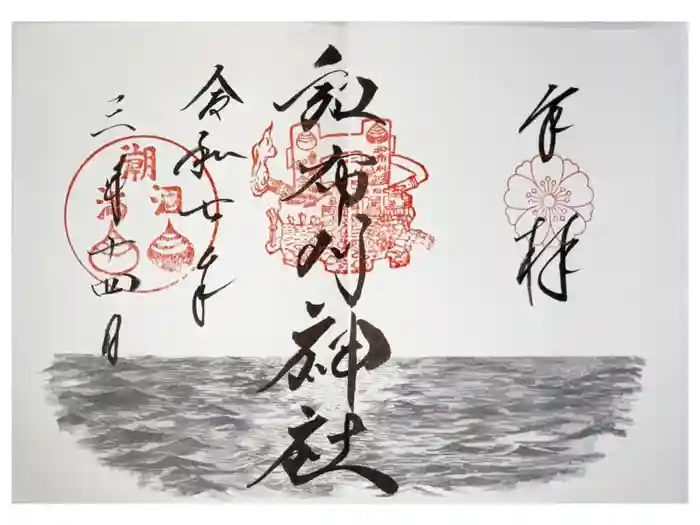 奉拝
和布刈神社
令和七年
三月十四日
潮
涸
満